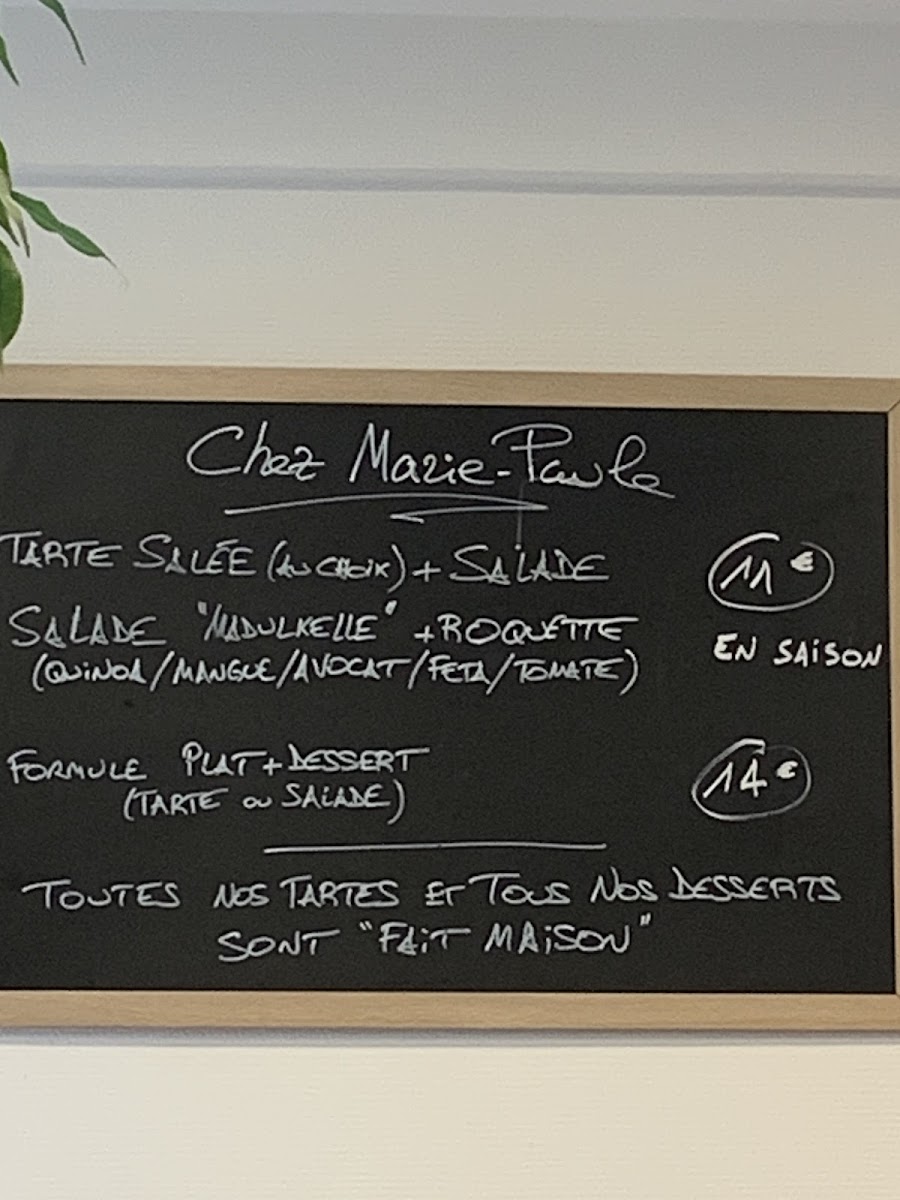 Chez Marie-Paule
TARTE SALÉE (AU CHOIX) + SALADE 11€
SALADE "MADULKELLE" + ROQUETTE EN SAISON
(QUINOA/MANGUE/AVOCAT/FETA/TOMATE)
FORMULE PLAT + DESSERT 14€
(TARTE OU SALADE)
TOUTES NOS TARTES ET TOUS NOS DESSERTS
SONT "FAIT MAISON"